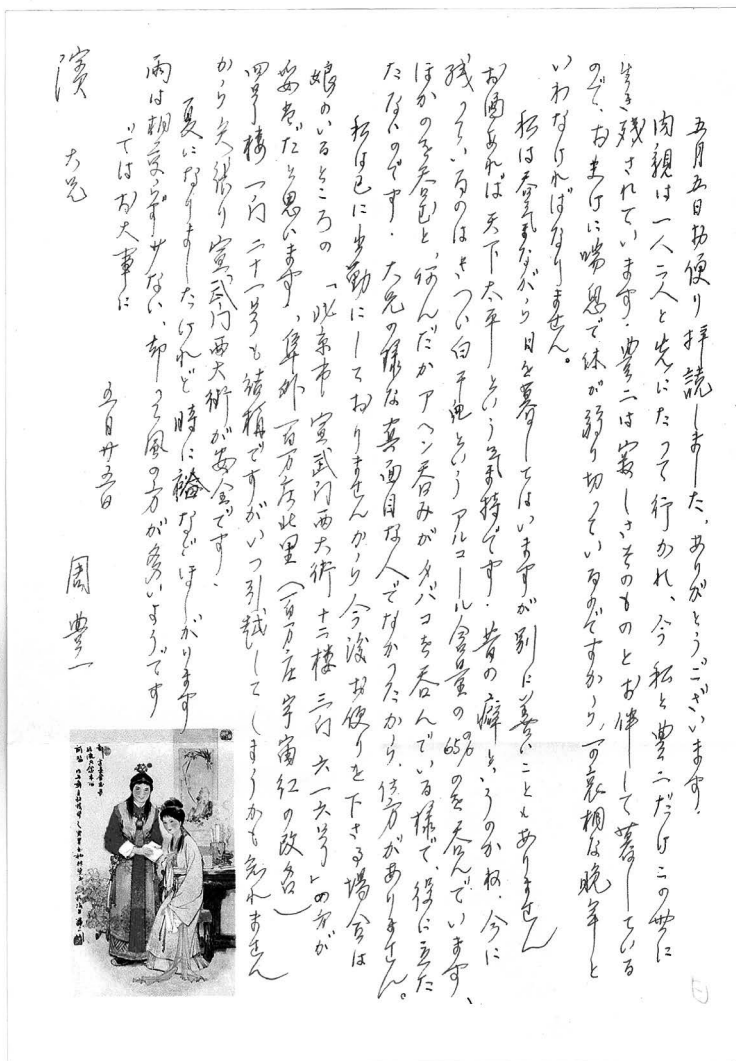 五月五日お便り拝読しました、ありがとうございます．
肉親は一人二人と先にたって行かれ、今私と豊二だけこの世に
生き残されています．豊二は寂しさそのものとお伴して暮している
ので、おまけに喘息で体が弱り切っているのですから、可哀相な晩年と
いわなければなりません。
私は呑気ながら日を暮してはいますが別に善いこともありません
お酒あれば天下太平という気持です．昔の癖というのかね、今に
残っているのはきつい白干児というアルコール含量の65%のを呑んでいます、
ほかのを呑むと、何んだかアヘン呑みがタバコを呑んでいる様で、役に立た
たないのです．大兄の様な真面目な人でなかったから、仕方がありません。
私は已に出勤にしておりませんから今後お便りを下さる場合は
娘のいるところの「北京市宣武门西大街十二楼三门六一六号」の方が
妥当だと思います、阜外百万庄北里（百万庄宇宙红の改名）
四号楼一门二十一号も結構ですがいつ引越してしまうかも知れません
から矢張り宣武门西大街が安全です．
夏になりましたけれど時になどほしがります
雨は相変らず少ない、却って風の方が多いようです
ではお大事に
五月廿五日
周豊一
濱大兄